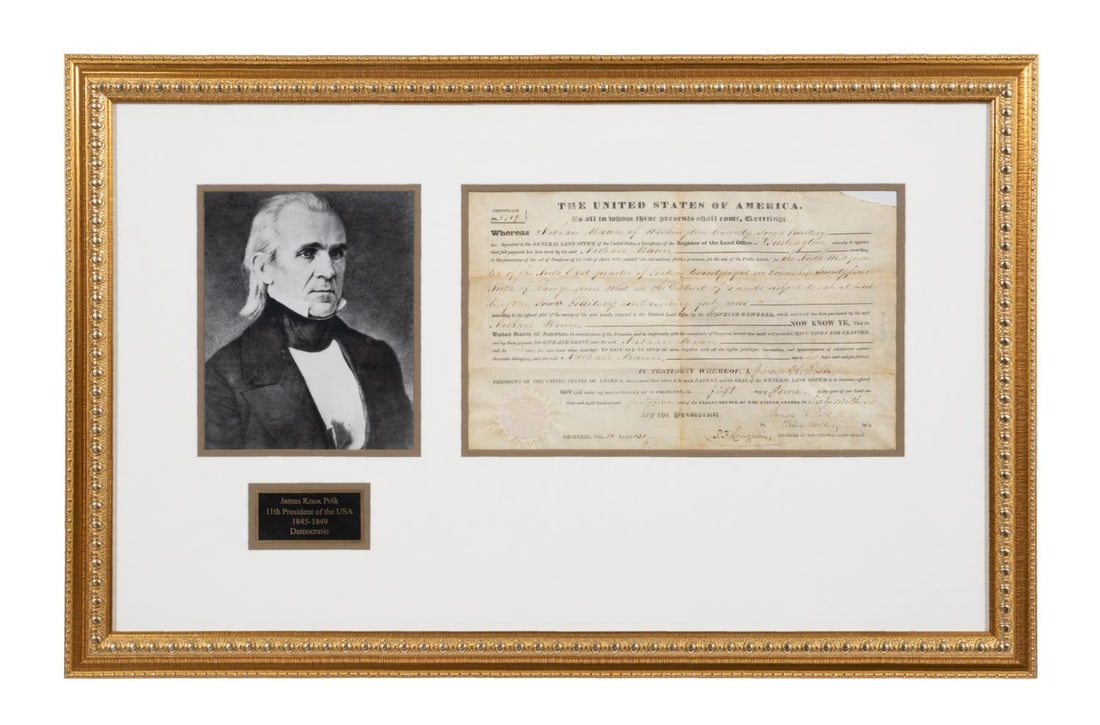 THE UNITED STATES OF AMERICA.
CERTIFICATE
To all to whom these presents shall come, Greeting:
Whereas Nathan Mann of Washington County Iowa Territory
has deposited in the GENERAL LAND OFFICE of the United States, a Certificate of the Register of the Land Office at Burlington whereby it appears
that full payment has been made by the said Nathan Mann according
to the provisions of the act of Congress of the 24th of April, 1820, entitled "An act making further provision for the sale of the Public Lands," for the North West quar
ter of the North East quarter of Section twenty eight in Township Seventy five
North of Range Seven West in the District of Lands subject to sale at
Iowa Territory containing forty acres
according to the official plat of the survey of the said Lands, returned to the General Land Office by the SURVEYOR GENERAL, which said tract has been purchased by the said
Nathan Mann NOW KNOW YE, That the
United States of America, in consideration of the Premises, and in conformity with the several acts of Congress, in such case made and provided, HAVE GIVEN AND GRANTED,
and by these presents DO GIVE AND GRANT, unto the said Nathan Mann
and to his heirs, the said tract above described: TO HAVE AND TO HOLD the same, together with all the rights, privileges, immunities, and appurtenances of whatsoever nature,
thereunto belonging, unto the said Nathan Mann and to his heirs and assigns forever.
IN TESTIMONY WHEREOF, I, James K. Polk
PRESIDENT OF THE UNITED STATES OF AMERICA, have caused these letters to be made PATENT, and the SEAL of the GENERAL LAND OFFICE to be hereunto affixed.
GIVEN under my hand at the CITY OF WASHINGTON, the first day of June in the year of our Lord
one thousand eight hundred and and of the INDEPENDENCE OF THE UNITED STATES the
BY THE PRESIDENT: James K. Polk
By Sec'y.
RECORDED, VOL. 14 PAGE
S. H. Laughlin, RECORDER OF THE GENERAL LAND OFFICE.
James Knox Polk
11th President of the USA
1845-1849
Democratic